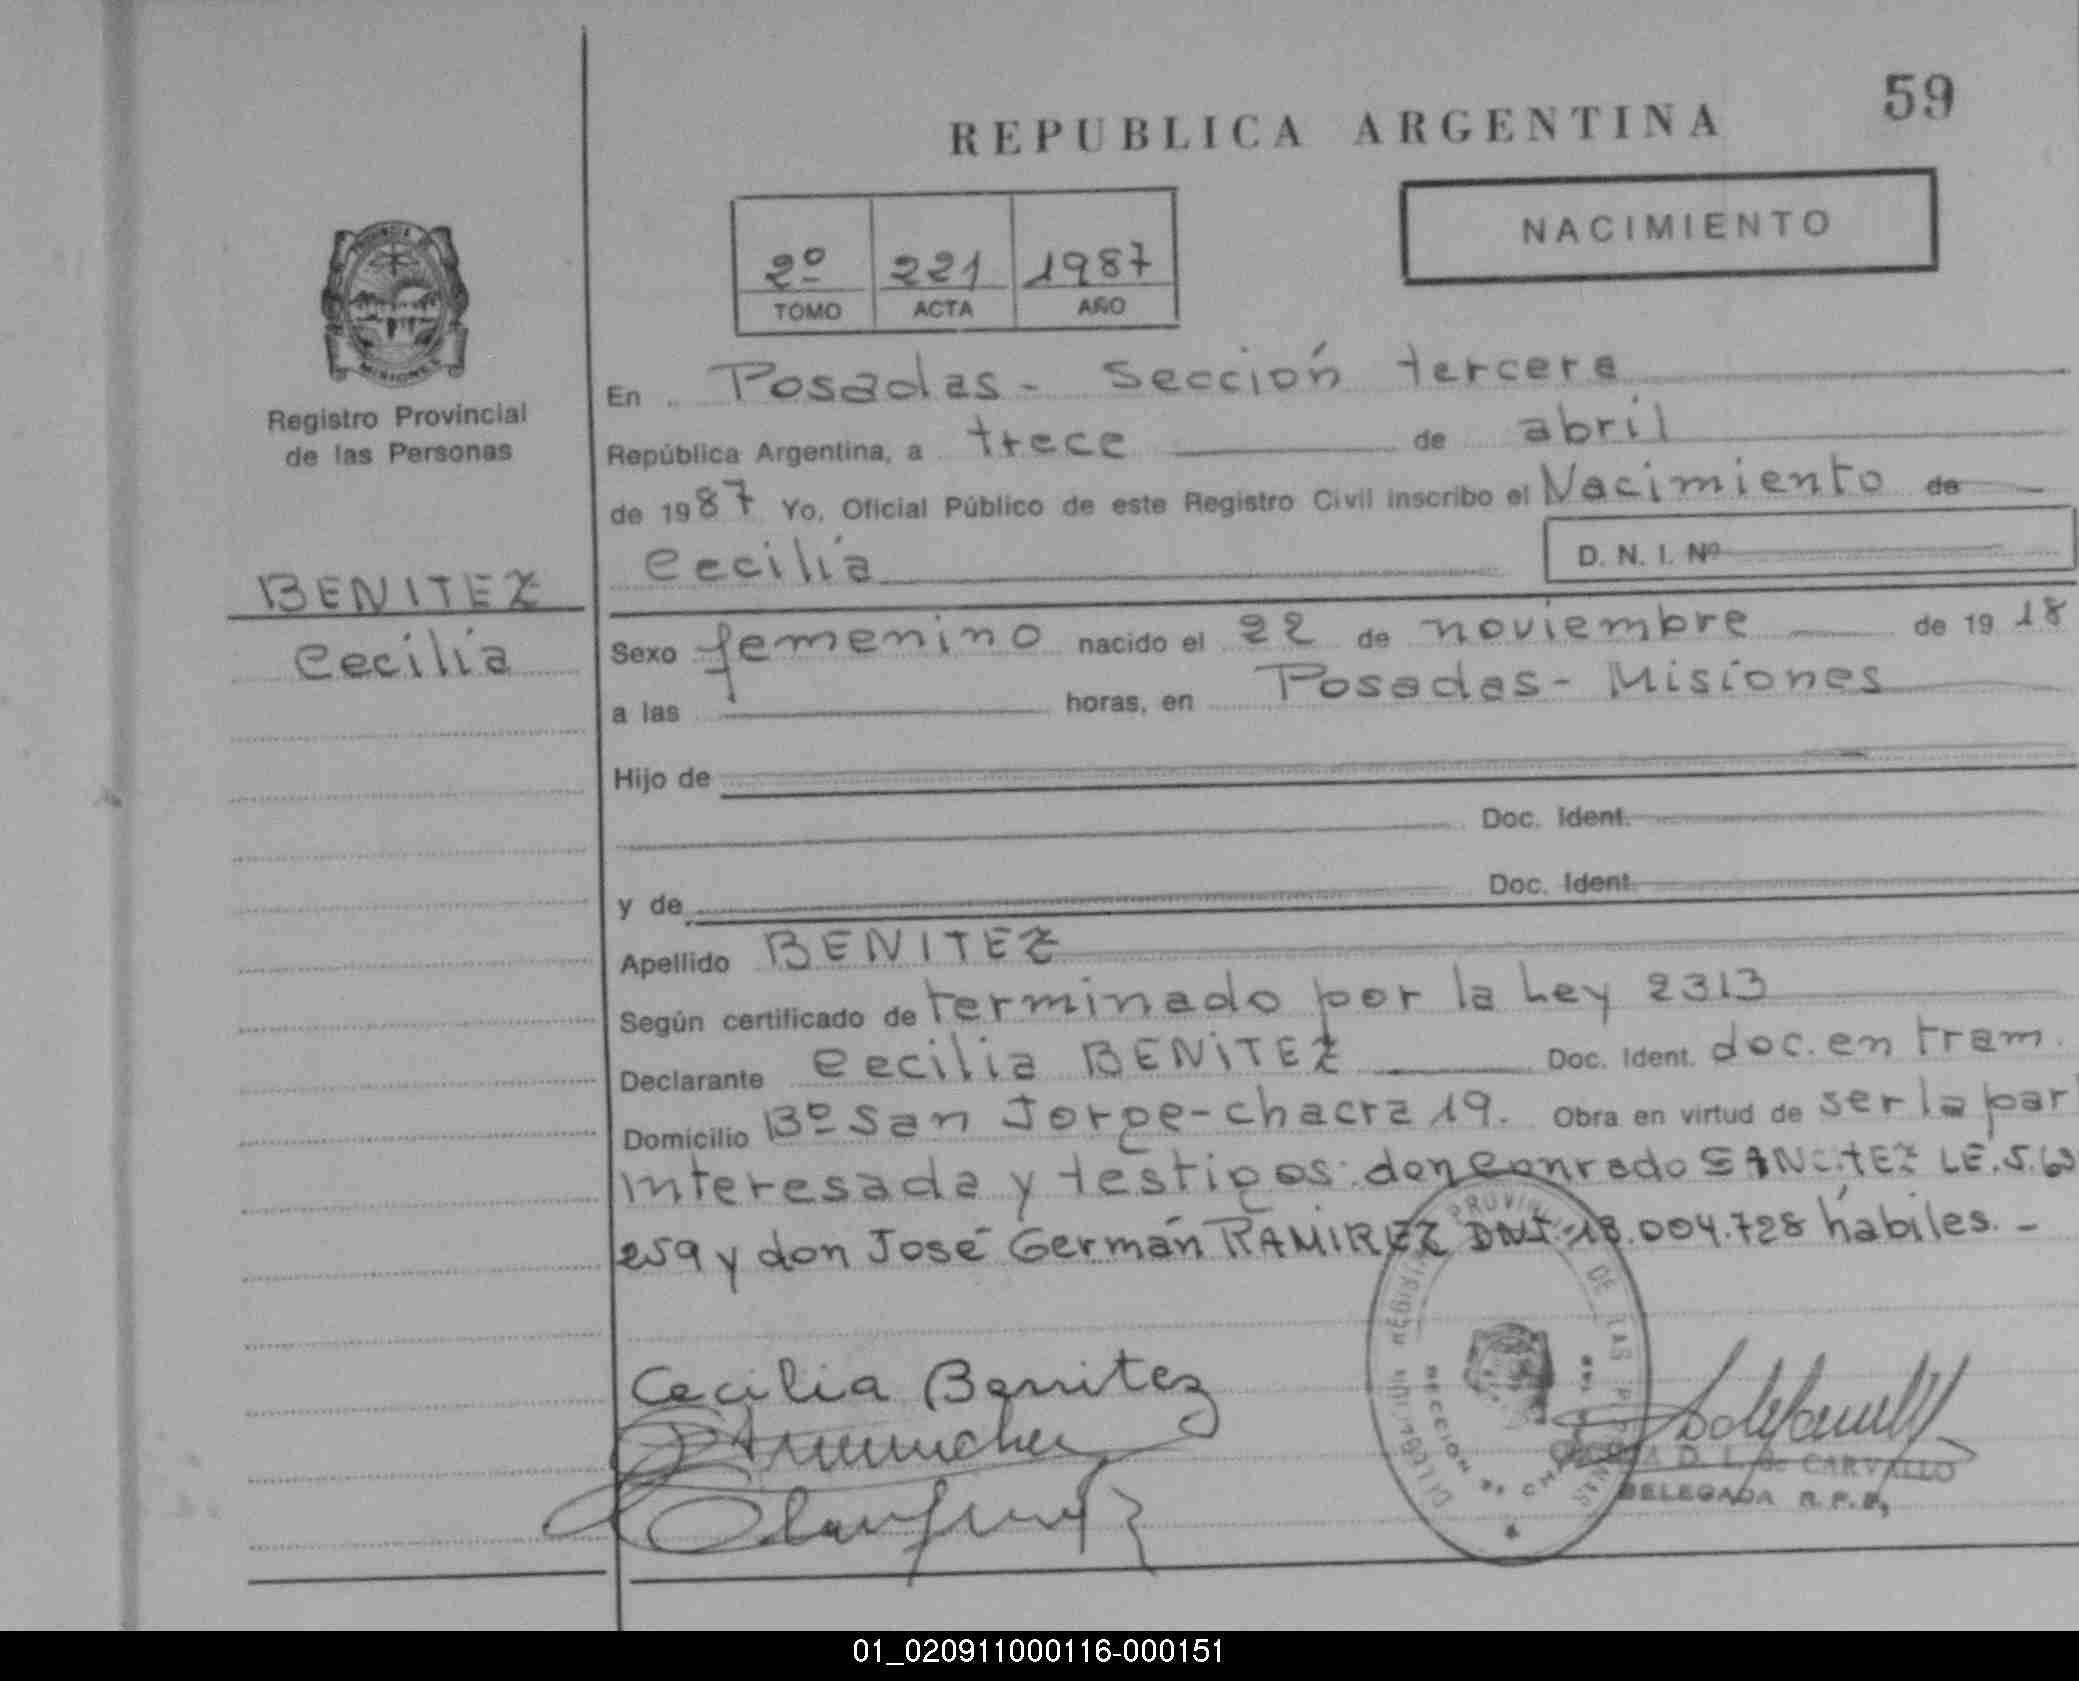 59
REPUBLICA ARGENTINA
NACIMIENTO
2º 221 1987
TOMO ACTA AÑO
PROVINCIA
MISIONES
Registro Provincial
de las Personas
BENITEZ
Cecilia
En Posadas - Sección tercera
República Argentina, a trece de abril
de 1987 Yo, Oficial Público de este Registro Civil inscribo el Nacimiento de
Cecilia D. N. I. Nº
Sexo femenino nacido el 22 de noviembre de 19 18
a las horas, en Posadas - Misiones
Hijo de
Doc. Ident.
y de Doc. Ident.
Apellido BENITEZ
Según certificado de terminado por la Ley 2313
Declarante Cecilia BENITEZ Doc. Ident. doc. en tram.
Domicilio Bº San Jorge - chacra 19. Obra en virtud de ser la par
interesada y testigos: don Conrado LE. 5.
259 y don José Germán RAMIREZ DNI. 18.004.728 hábiles. -
Cecilia Benitez
DE LAS
SECCION
D. L. de CARVALLO
DELEGADA R. P. P.
01_020911000116-000151